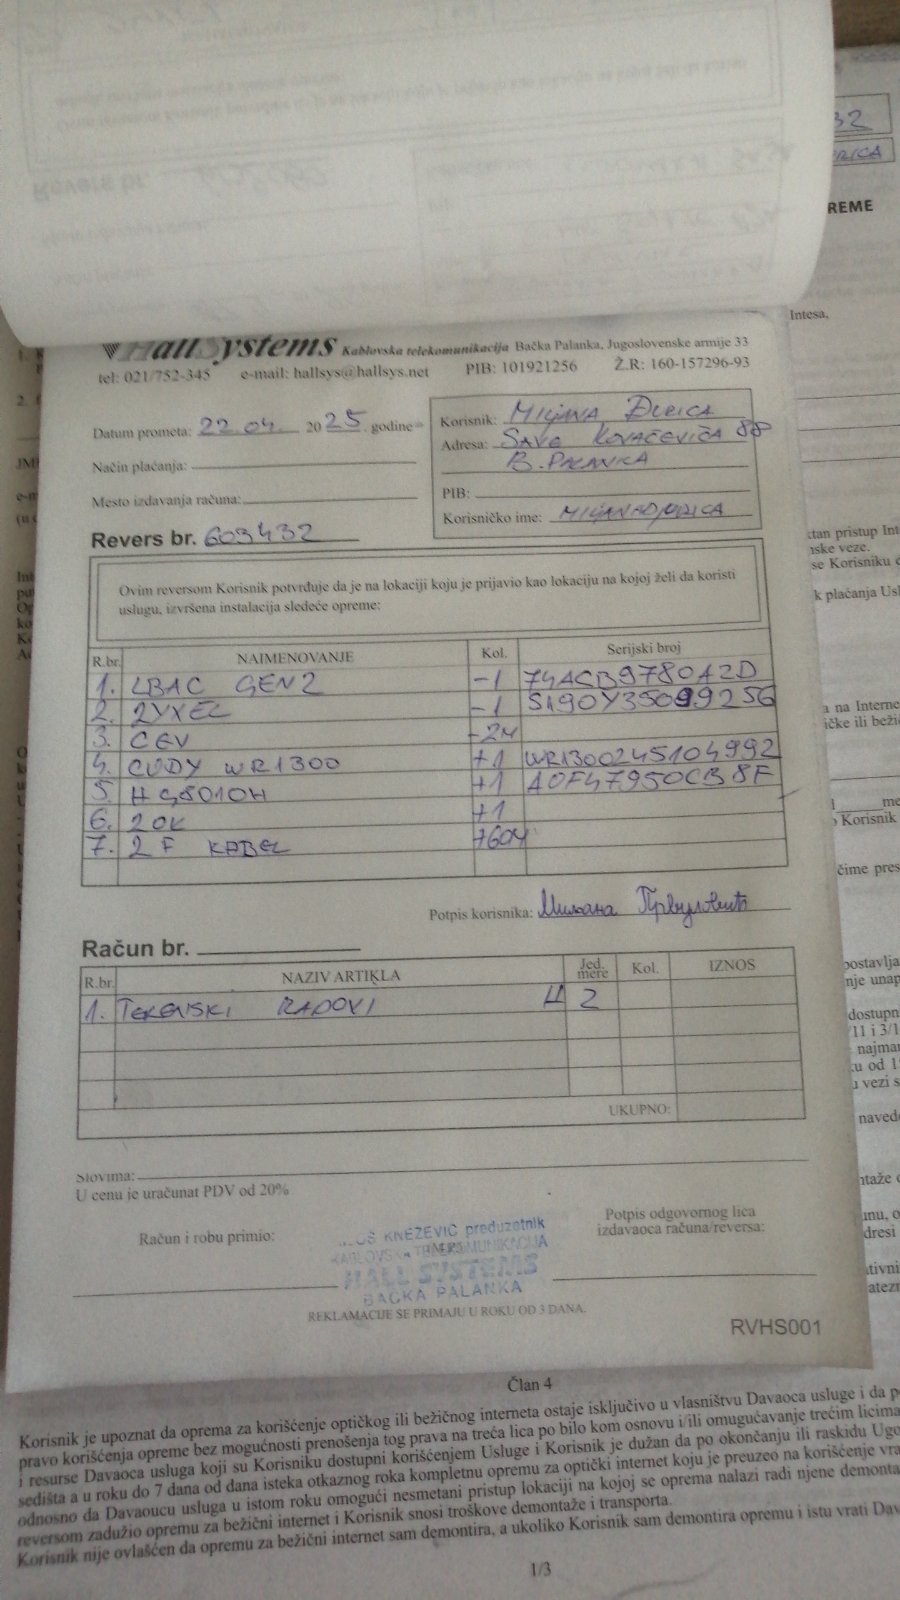 32
RICA
REME
Intesa,
HallSystems Kablovska telekomunikacija Bačka Palanka, Jugoslovenske armije 33
tel: 021/752-345 e-mail: hallsys@hallsys.net PIB: 101921256 Ž.R: 160-157296-93
Datum prometa: 22 04. 2025. godine
Način plaćanja:
Mesto izdavanja računa:
Korisnik: MILJANA ĐURICA
Adresa: SAVE KOVAČEVIĆA 88
B. PALANKA
PIB:
Korisničko ime: MILJANADJURICA
Revers br. 603432
Ovim reversom Korisnik potvrđuje da je na lokaciji koju je prijavio kao lokaciju na kojoj želi da koristi
uslugu, izvršena instalacija sledeće opreme:
R.br. NAIMENOVANJE Kol. Serijski broj
1. LBAC GEN2 -1 74ACB9780A2D
2. ZYXEL -1 S190Y35099256
3. CEV -2M
4. CUDY WR1300 +1 WR1300245104992
5. HG8010H +1 A0F47950CB8F
6. ZOK +1
7. 2F KABEL +60M
Potpis korisnika: Миљана Првуловић
Račun br.
R.br. NAZIV ARTIKLA Jed. mere Kol. IZNOS
1. TERENSKI RADOVI H 2
UKUPNO:
Slovima:
U cenu je uračunat PDV od 20%
Račun i robu primio:
Potpis odgovornog lica
izdavaoca računa/reversa:
KNEŽEVIĆ preduzetnik
KABLOVSKA TELEKOMUNIKACIJA
HALL SYSTEMS
BAČKA PALANKA
REKLAMACIJE SE PRIMAJU U ROKU OD 3 DANA.
RVHS001
ktan pristup Int
nske veze.
se Korisniku
k plaćanja Usl
a na Interne
ičke ili beži
me
Korisnik
čime pres
postavlja
nje unap
dostupn
/11 i 3/1
najma
u od 1
u vezi s
navede
ntaže
unu, o
dresi
ativni
atezn
Član 4
Korisnik je upoznat da oprema za korišćenje optičkog ili bežičnog interneta ostaje isključivo u vlasništvu Davaoca usluge i da p
pravo korišćenja opreme bez mogućnosti prenošenja tog prava na treća lica po bilo kom osnovu i/ili omugućavanje trećim licima
i resurse Davaoca usluga koji su Korisniku dostupni korišćenjem Usluge i Korisnik je dužan da po okončanju ili raskidu Ugo
sedišta a u roku do 7 dana od dana isteka otkaznog roka kompletnu opremu za optički internet koju je preuzeo na korišćenje vra
odnosno da Davaoucu usluga u istom roku omogući nesmetani pristup lokaciji na kojoj se oprema nalazi radi njene demonta
reversom zadužio opremu za bežični internet i Korisnik snosi troškove demontaže i transporta.
Korisnik nije ovlašćen da opremu za bežični internet sam demontira, a ukoliko Korisnik sam demontira opremu i istu vrati Dav
1/3